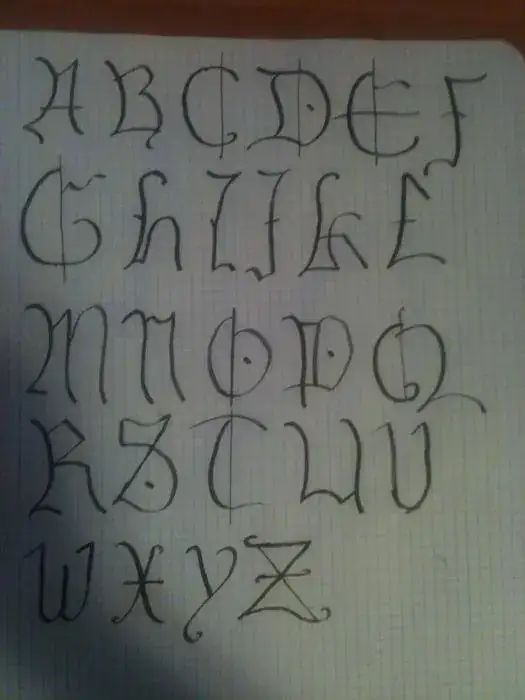 A B C D E F
G H I J K L
M N O P Q
R S T U V
W X Y Z